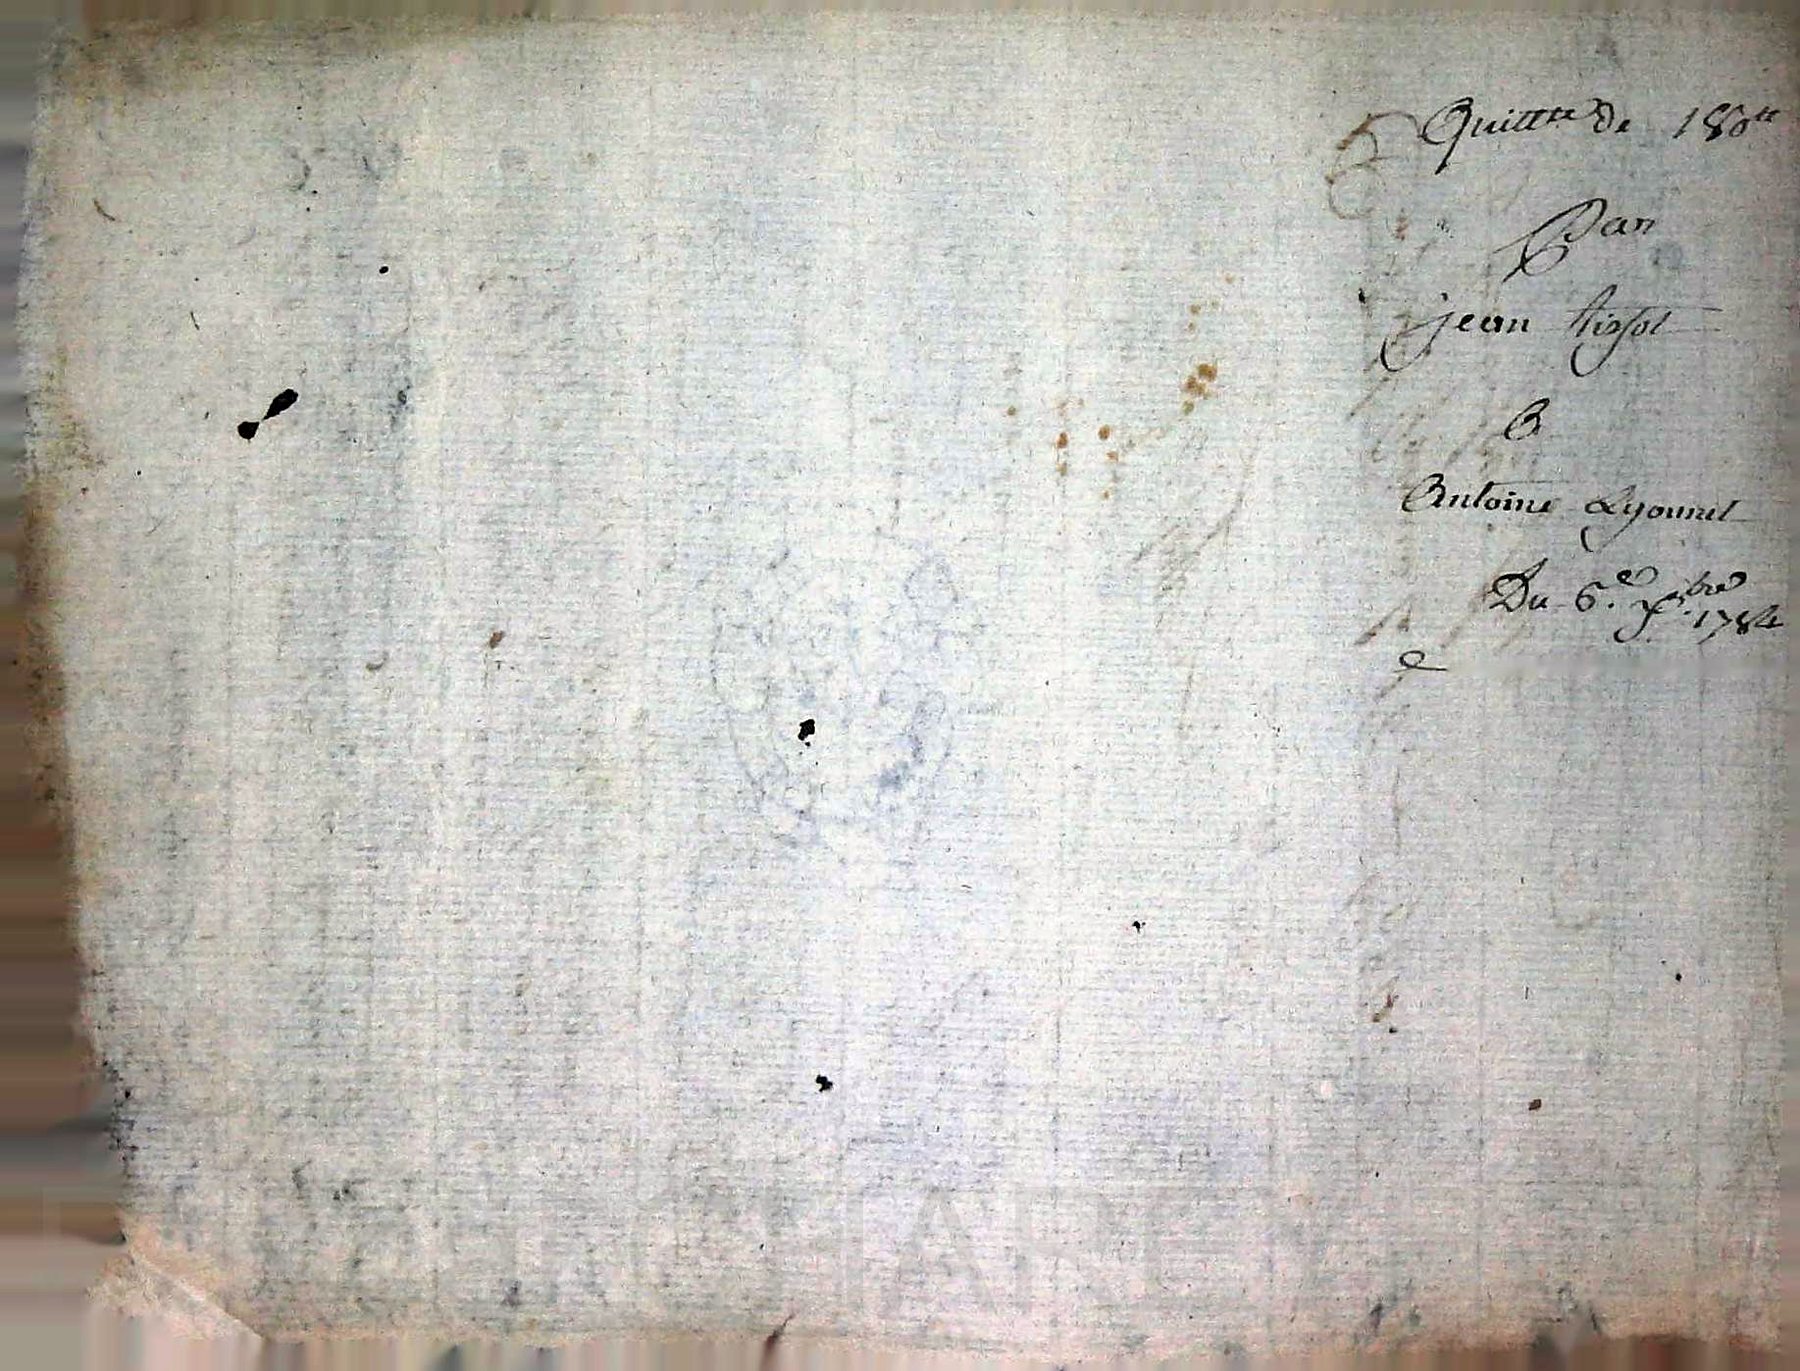 Quittce de 180tt
Par
jean tissot
A
Antoine Lyonnet
Du 6.e xbre 1784